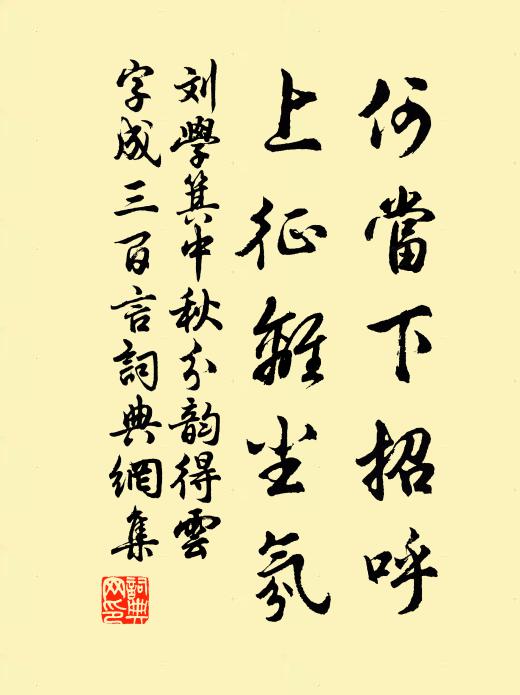 何當下招呼
上征離尘氛
刘學箕中秋分韵得雲
字成三百言詞典網集
詞典
网印